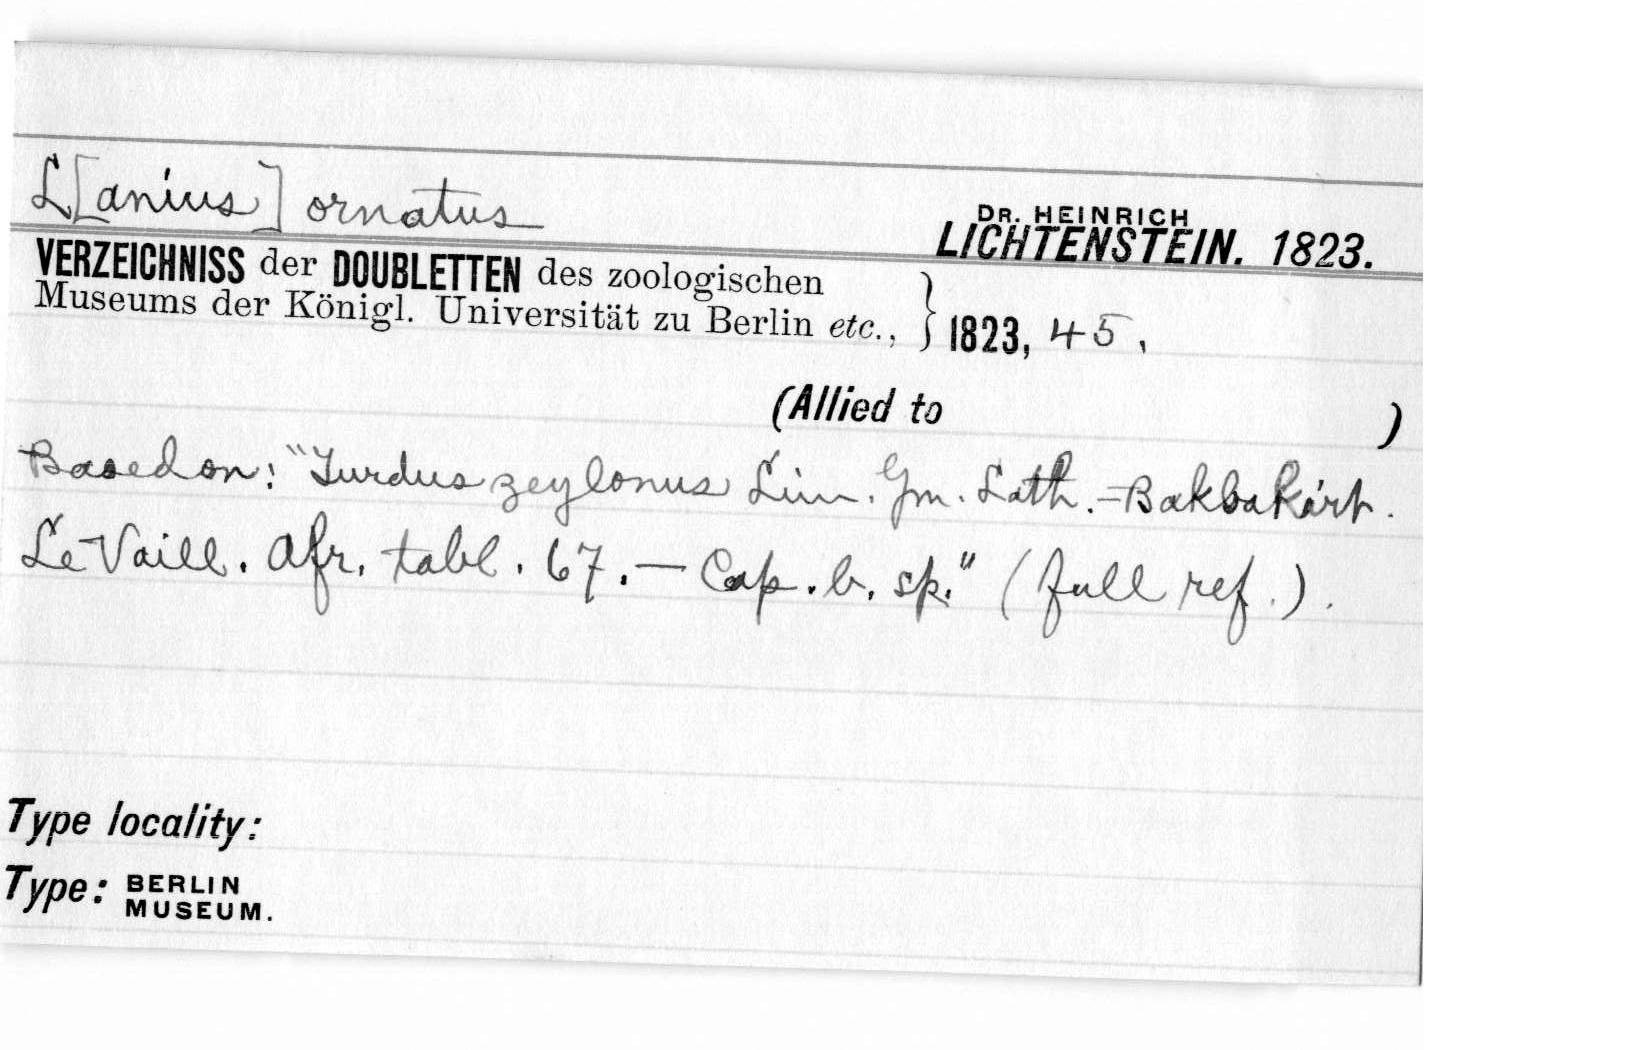 L[anius] ornatus
DR. HEINRICH
LICHTENSTEIN. 1823.
VERZEICHNISS der DOUBLETTEN des zoologischen
Museums der Königl. Universität zu Berlin etc., } 1823, 45.
(Allied to )
Based on: "Turdus zeylonus Linn. Gm. Lath. — Bakbakiri.
Le Vaill. Afr. tabl. 67. — Cap. b. sp." (full ref.).
Type locality:
Type: BERLIN
MUSEUM.